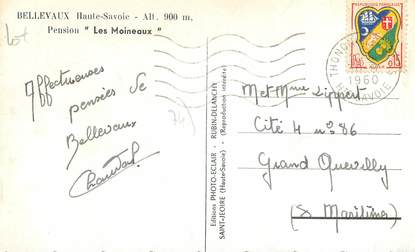 BELLEVAUX Haute-Savoie - Alt. 900 m,
Pension " Les Moineaux "
Affectueuses
pensées de
Bellevaux
Editions PHOTO-ECLAIR - RUBIN-DELANCHY
SAINT-JEOIRE (Haute-Savoie) - (Reproduction interdite)
THONON
1960
SAVOIE
0,15
Met Mme Lippert
Cité 4 n° 86
Grand Quevilly
(S. Maritime)